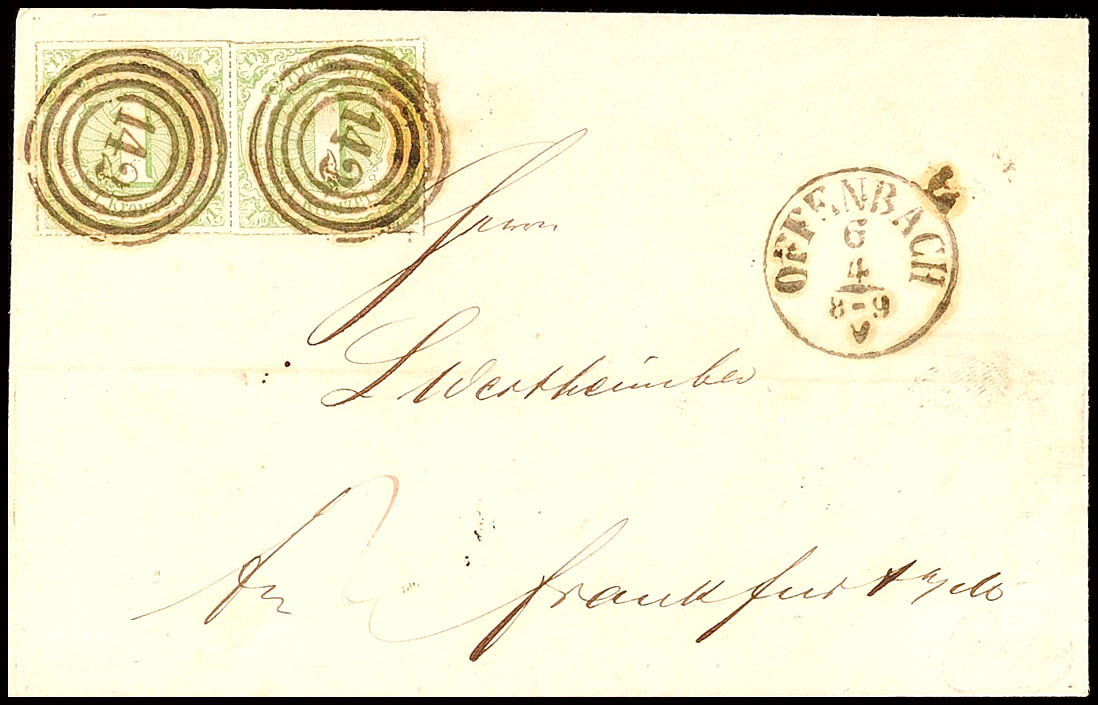 142
142
1
Kreuzer
OFFENBACH
6
4
8-9
Herrn
L Wertheimber
in Frankfurt a/M